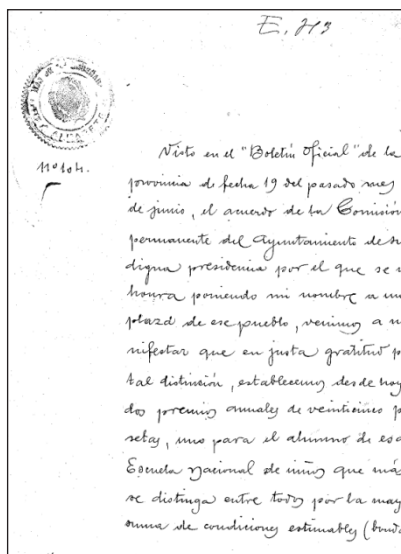 E. 213
Nº 104.
Visto en el "Boletín Oficial" de la
provincia de fecha 19 del pasado mes
de junio, el acuerdo de la Comisión
permanente del Ayuntamiento de su
digna presidencia por el que se
honra poniendo mi nombre a una
plaza de ese pueblo, venimos a ma
nifestar que en justa gratitud p
tal distinción, establecemos desde hoy
dos premios anuales de veinticinco p
setas, uno para el alumno de esa
Escuela Nacional de niños que más
se distinga entre todos por la may
suma de condiciones estimables (bonda